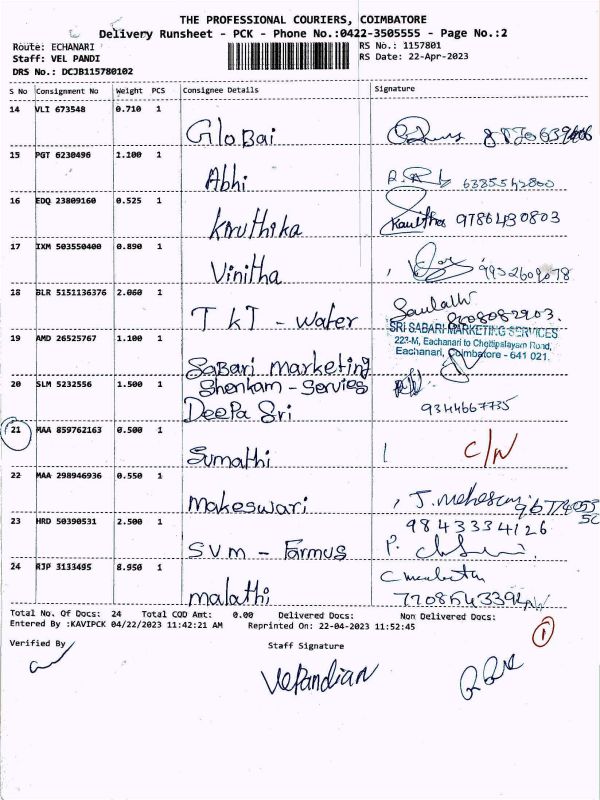 THE PROFESSIONAL COURIERS, COIMBATORE
Delivery Runsheet - PCK - Phone No.:0422-3505555 - Page No.:2
Route: ECHANARI
Staff: VEL PANDI
DRS No.: DCJB115780102
RS No.: 1157801
RS Date: 22-Apr-2023
S No Consignment No Weight PCS Consignee Details Signature
14 VLI 673548 0.710 1
GloBai
15 PGT 6230496 1.100 1
Abhi 6385542800
16 EDQ 23809160 0.525 1
Kiruthika Kavitha 9786430803
17 IXM 503550400 0.890 1
Vinitha
18 BLR 5151136376 2.060 1
TKT - Water
8608082903.
19 AMD 26525767 1.100 1
SRI SABARI MARKETING SERVICES
223-M, Eachanari to Chettipalayam Road,
Eachanari, Coimbatore - 641 021.
SaBari marketing
20 SLM 5232556 1.500 1
Shenkam - Servies
DeePa Sri 9344667735
21 MAA 859762163 0.500 1
Sumathi C/N
22 MAA 298946936 0.550 1
Makeswari
23 HRD 50390531 2.500 1
9843334126
SVM - Farmus
24 RJP 3133495 8.950 1
malathi
Total No. Of Docs: 24 Total COD Amt: 0.00 Delivered Docs: Non Delivered Docs:
Entered By :KAVIPCK 04/22/2023 11:42:21 AM Reprinted On: 22-04-2023 11:52:45
1
Verified By Staff Signature
VelPandian